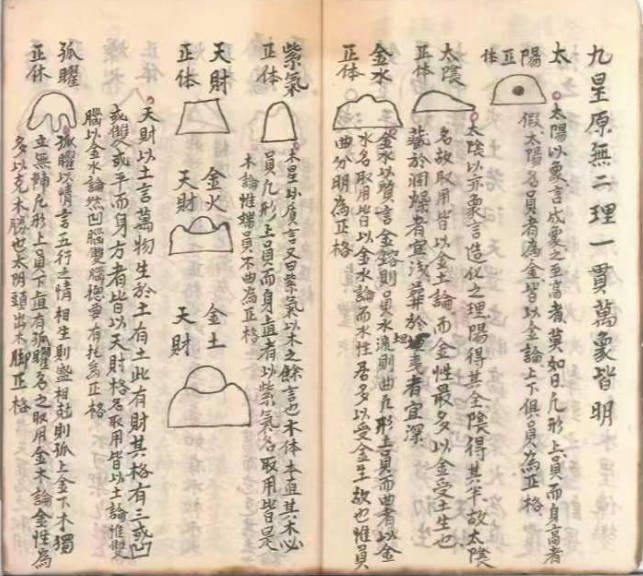 九星原無二理一貫萬象皆明
太陽正体
太陽以象言成象之至高者莫如日凡形上員而身高者
假太陽名員者為金皆以金論上下俱員為正格
太陰正体
太陰以亦象言造化之理陽得其全陰得其半故太陰
名故取用皆以金土論而金性最多以金受土生也
藏於洞燥者宜淺葬於坦夷者宜深
金水正体
金水以質言金鎔則員水流則曲凡形上員而曲者以金
水名取用皆以金水論而水性居多以受金生故也惟員
曲分明為正格
紫氣正体
木星以質言又曰紫氣以木之餘言也木体本直其木必
員凡形上員而身直者以紫氣名取用皆是
木論惟端員不曲為正格
天財正体
金火天財
金土天財
天財以土言萬物生於土有土此有財其格有三或凹
或雙或平而身方者皆以天財格名取用皆以土論惟雙
腦以金水論然凹腦雙腦總要有托為正格
孤曜正体
孤曜以情言五行之情相生則盛相尅則孤上金下木獨
立無輔凡形上員下直有孤曜名之取用金木論金性為
多以克木勝也太陰頭出木脚正格